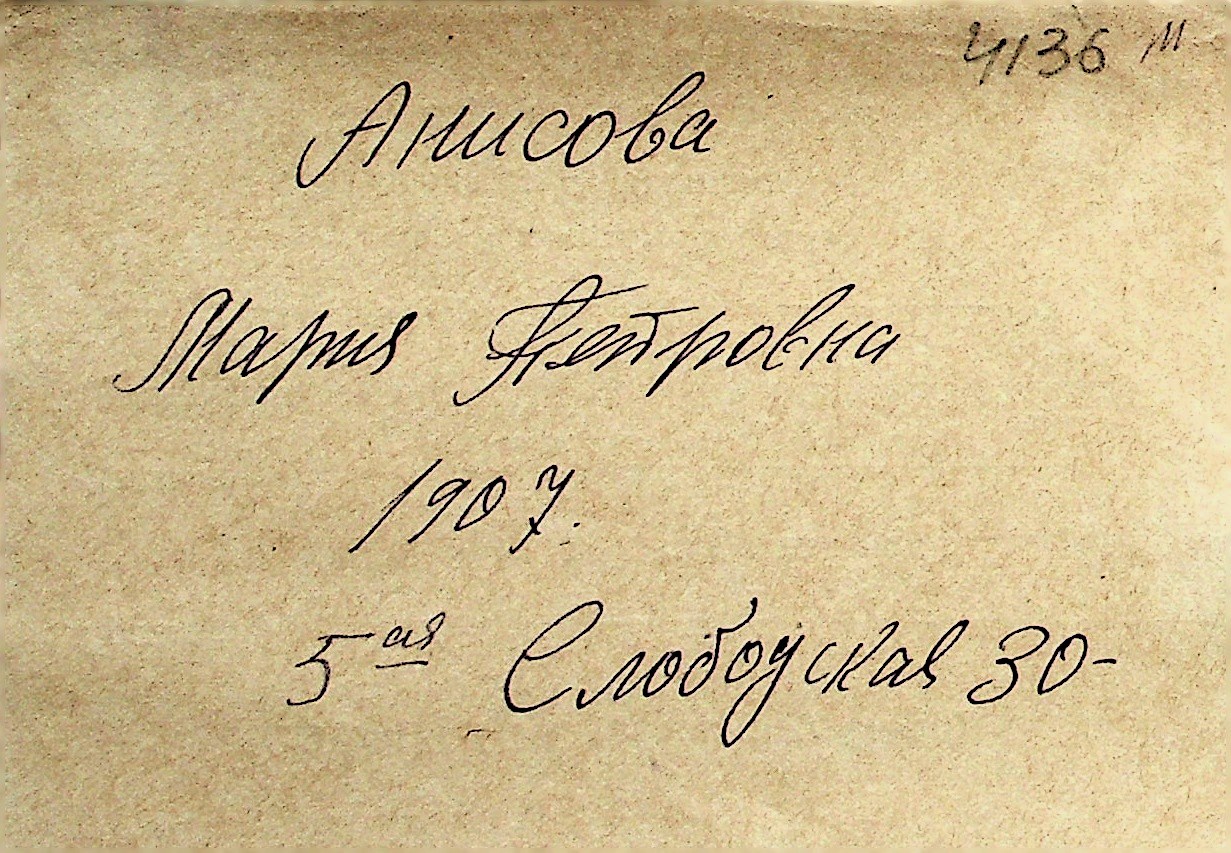 4136 м
Анисова
Мария Петровна
1907.
5ая Слободская 30-